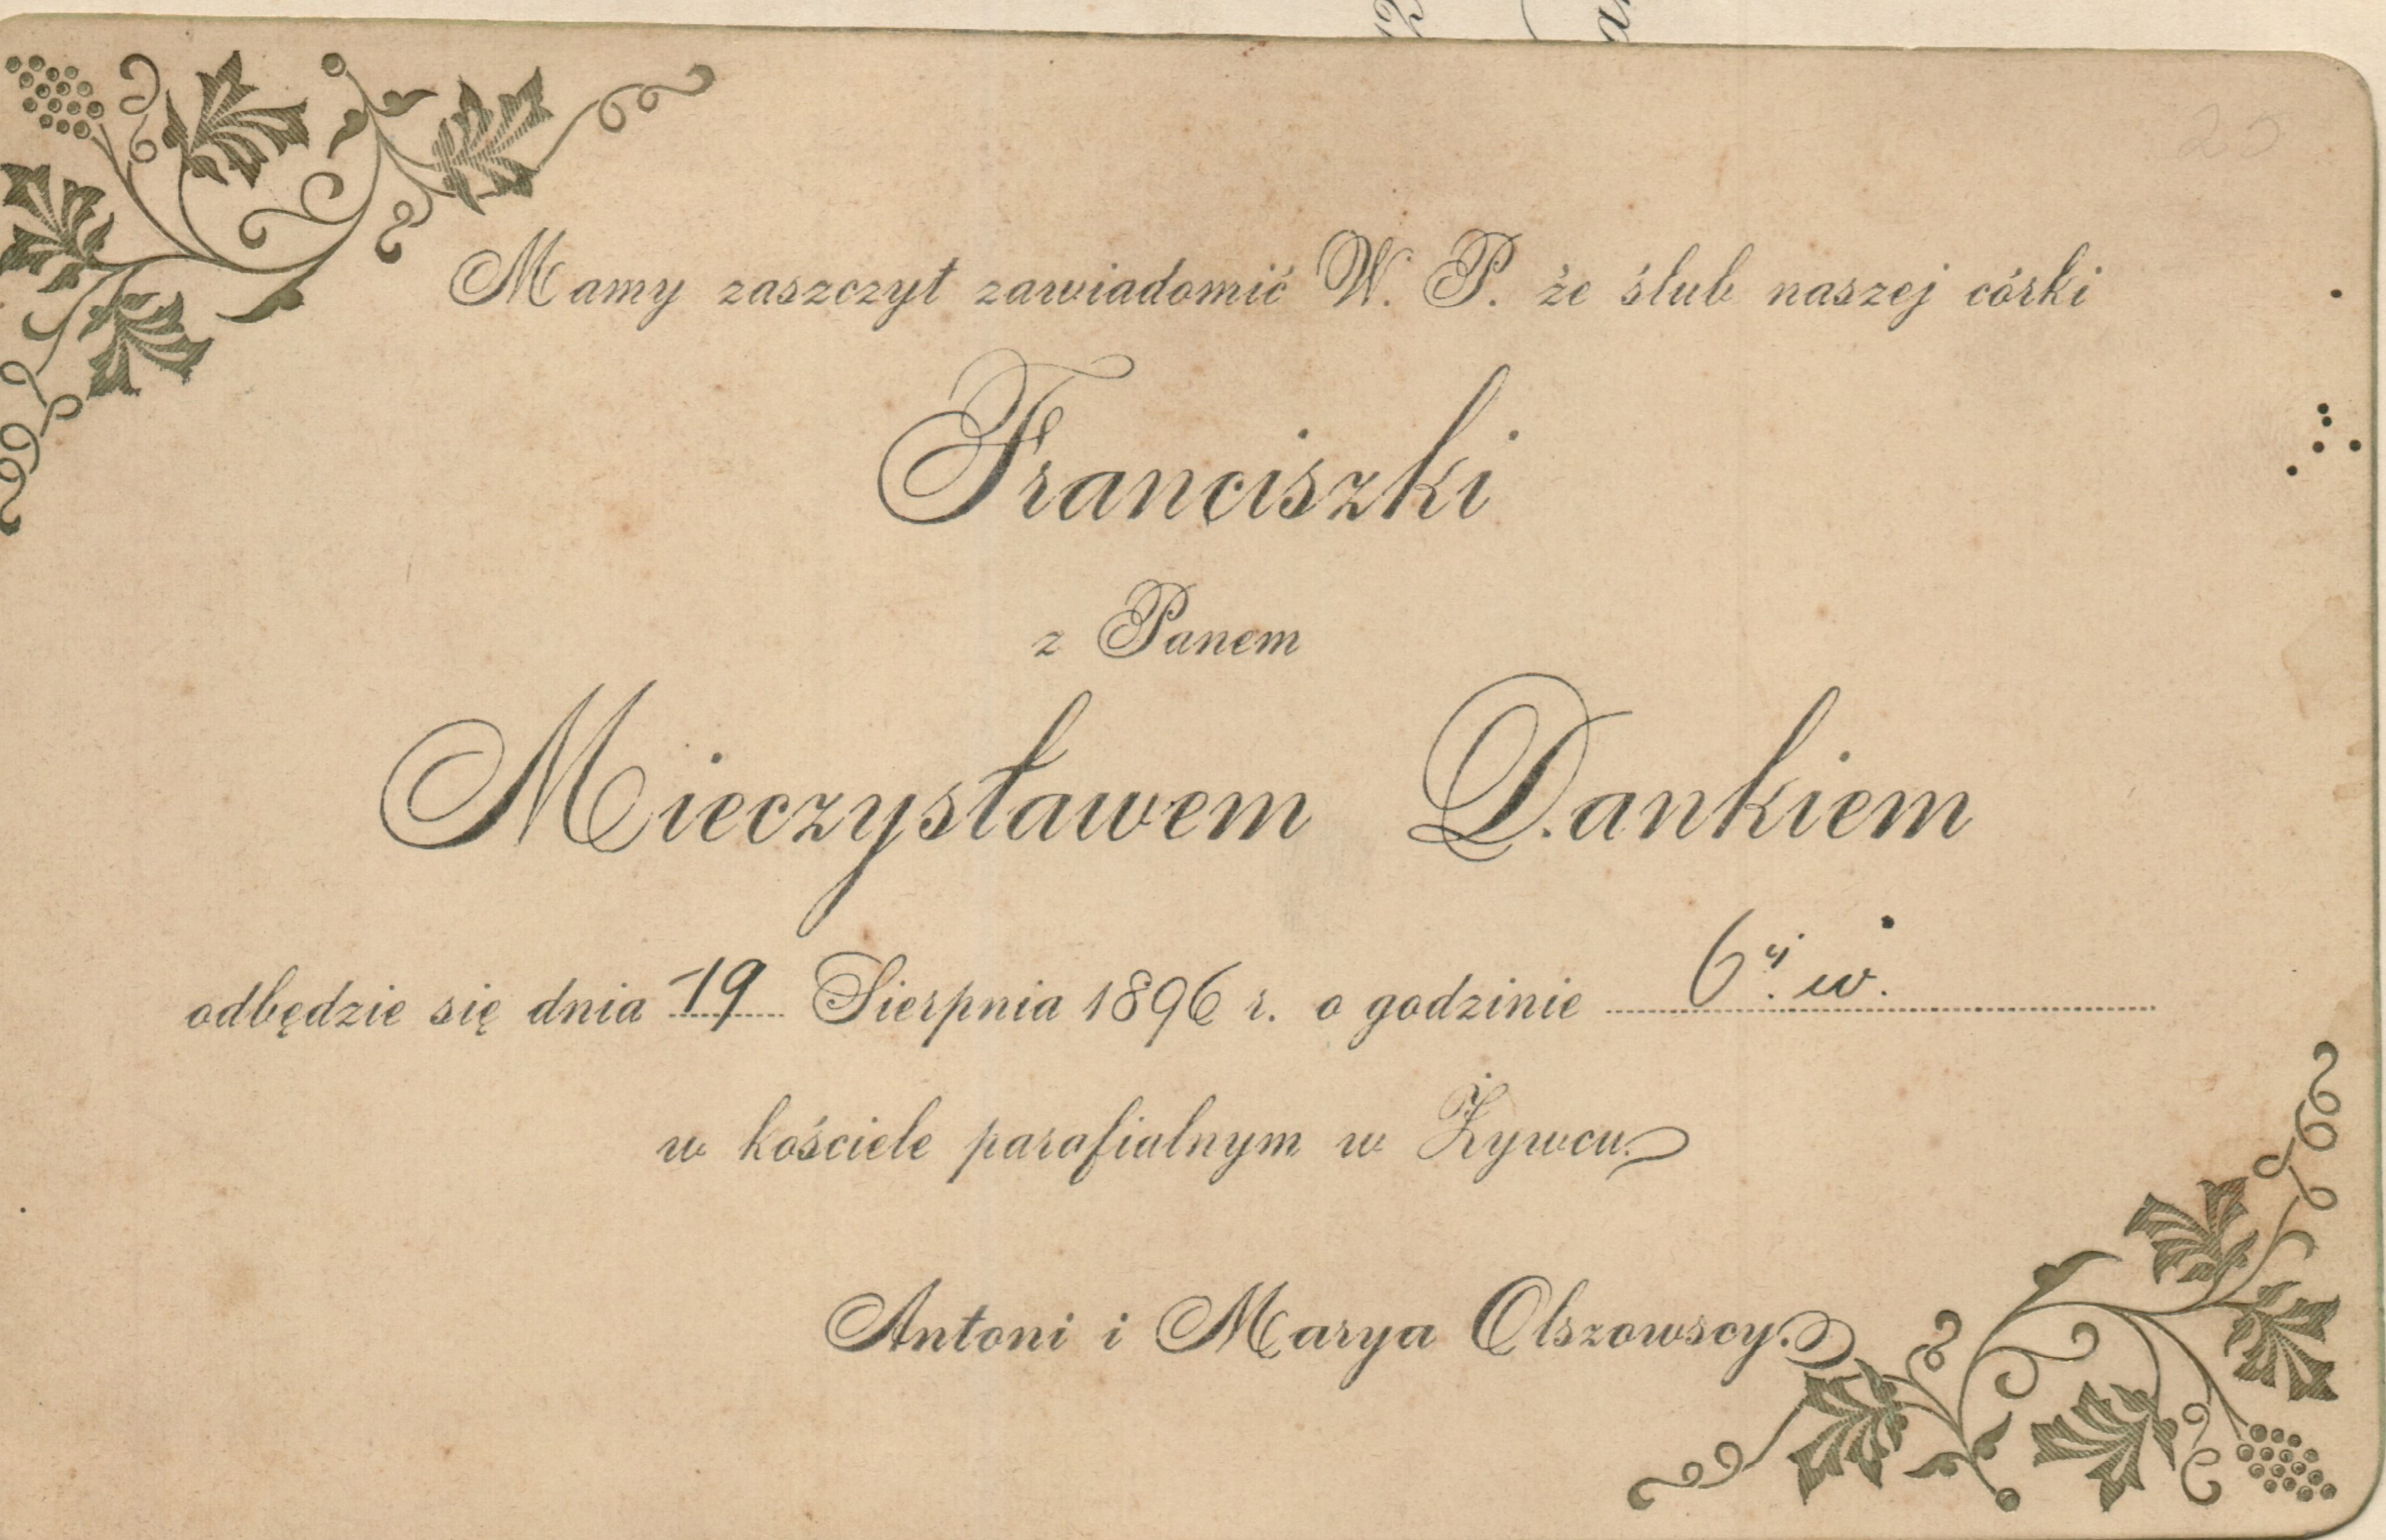 25
Mamy zaszczyt zawiadomić W. P. że ślub naszej córki
Franciszki
z Panem
Mieczysławem Dankiem
odbędzie się dnia 19 Sierpnia 1896 r. o godzinie 6ej w.
w kościele parafialnym w Żywcu.
Antoni i Marya Olszowscy.